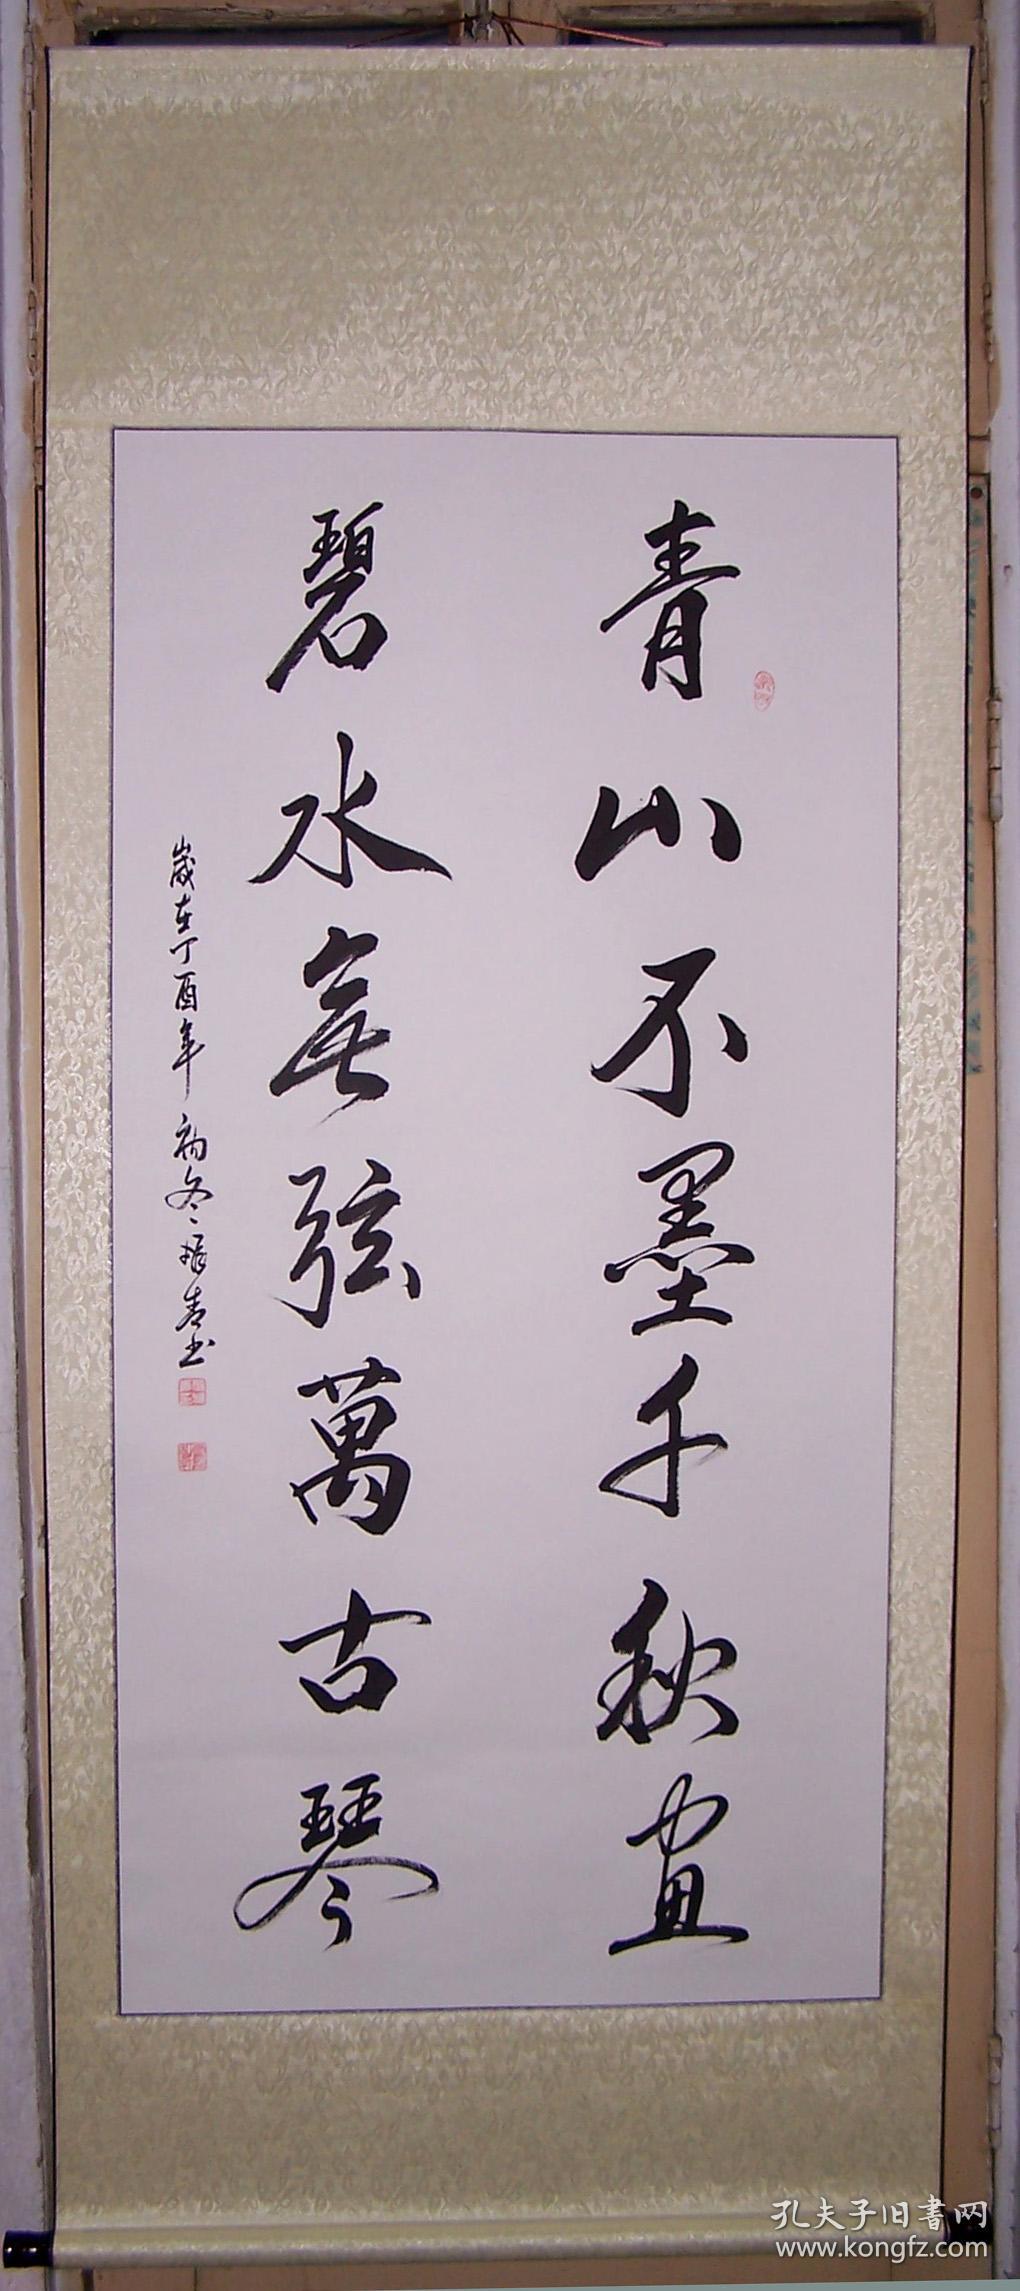 青山不墨千秋画
碧水無弦萬古琴
歲在丁酉年初冬振青书
孔夫子旧書网
www.kongfz.com